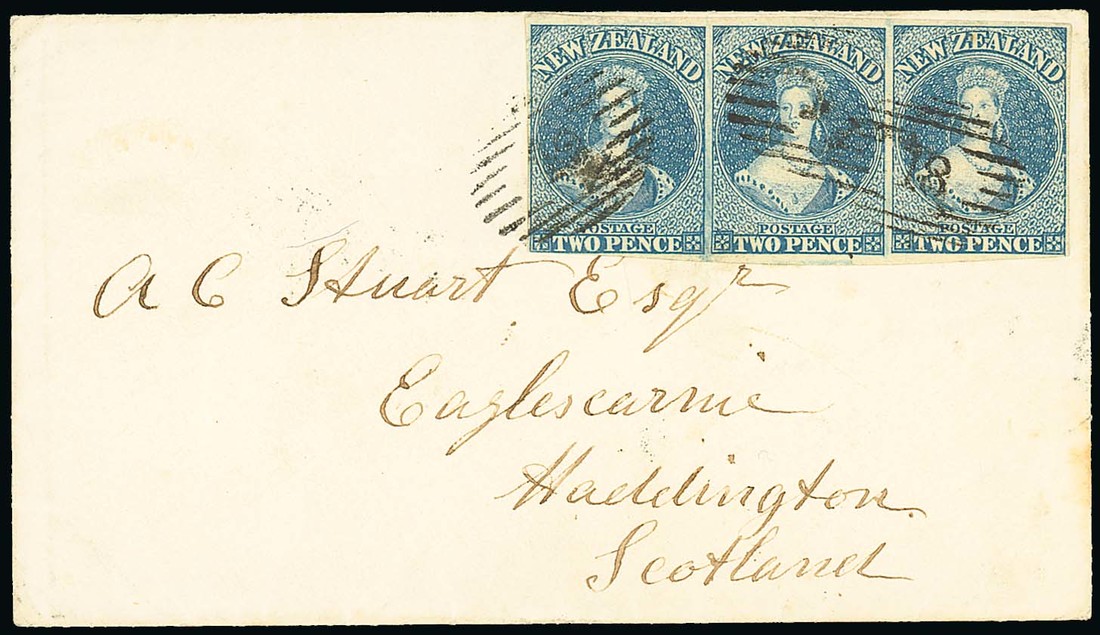 NEW ZEALAND NEW ZEALAND NEW ZEALAND
POSTAGE POSTAGE POSTAGE
TWO PENCE TWO PENCE TWO PENCE
A C Stuart Esqr
Eaglescarnie
Haddington
Scotland